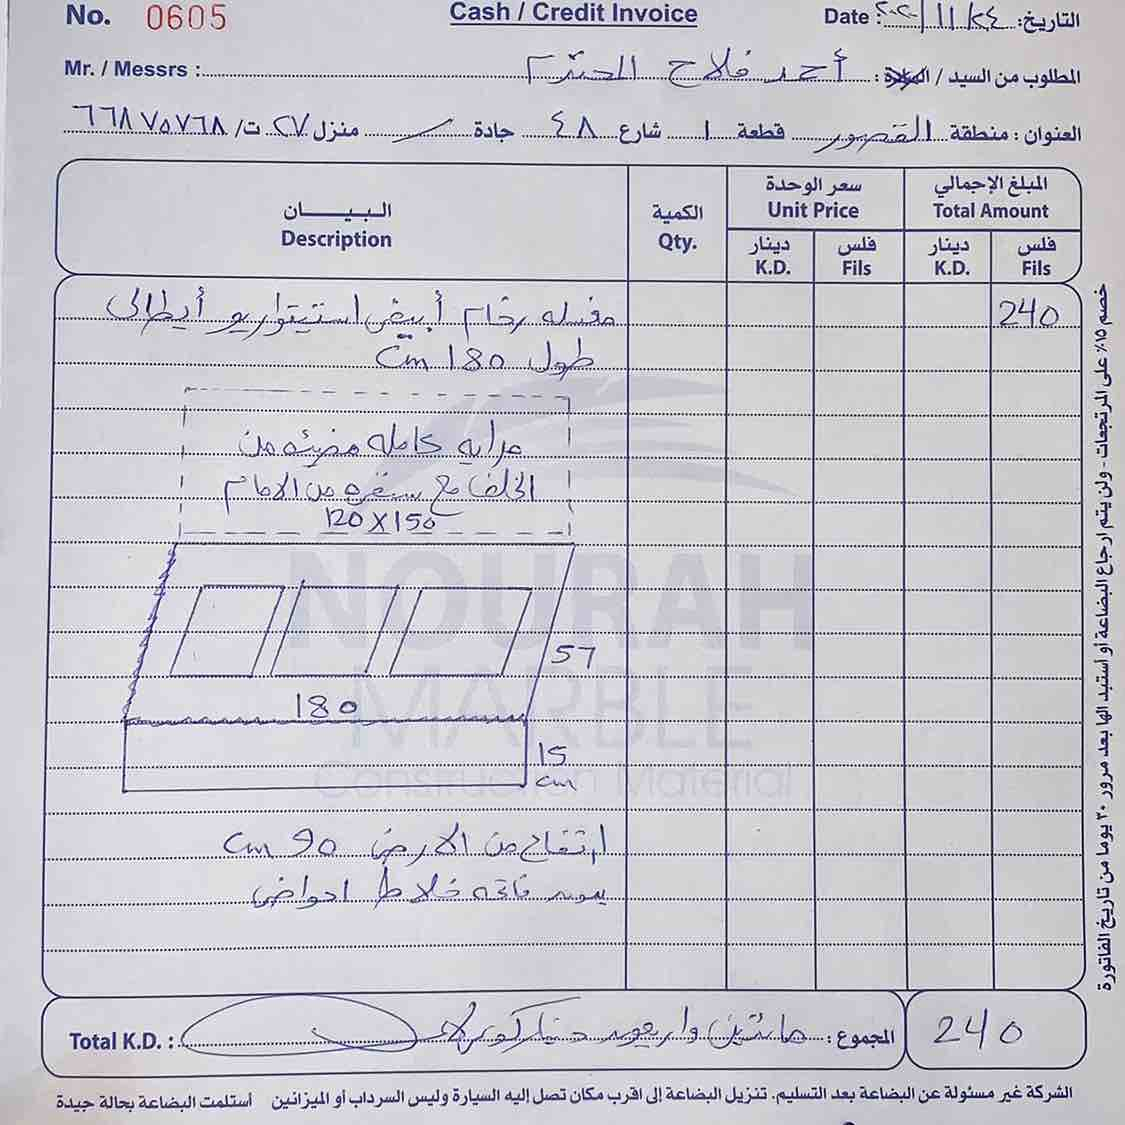 No. 0605
Cash / Credit Invoice
Date : ٢٠٢٠/١١/٢٤ التاريخ:
Mr. / Messrs : أحمد فلاح المحترم المطلوب من السيد / السادة :
العنوان : منطقة القصور قطعة ١ شارع ٤٨ جادة منزل ٢٧ ت/ ٦٦٨٧٥٧٦٨
البـيـــــان
Description
الكمية
Qty.
سعر الوحدة
Unit Price
المبلغ الإجمالي
Total Amount
دينار
K.D.
فلس
Fils
دينار
K.D.
فلس
Fils
مغسله رخام أبيض استيتواريو أيطالى
240
طول 180 Cm
مرايه كامله مضيئه من
الخلف مع سفره من الامام
120 X 150
57
180
15
cm
ارتفاع من الارض 90 Cm
بدون فاتحه خلاط احواض
NOURAH
MARBLE
Construction Material
Total K.D. : مائتين واربعون دينار كويتى المجموع :
240
الشركة غير مسئولة عن البضاعة بعد التسليم. تنزيل البضاعة إلى اقرب مكان تصل إليه السيارة وليس السرداب أو الميزانين أستلمت البضاعة بحالة جيدة
خصم ١٥٪ على المرتجعات - ولن يتم ارجاع البضاعة أو استبدالها بعد مرور ٣٠ يوما من تاريخ الفاتورة